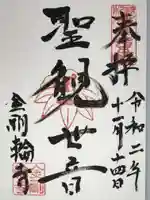 奉拝
令和二年
十一月十四日
聖観世音
金剛輪寺